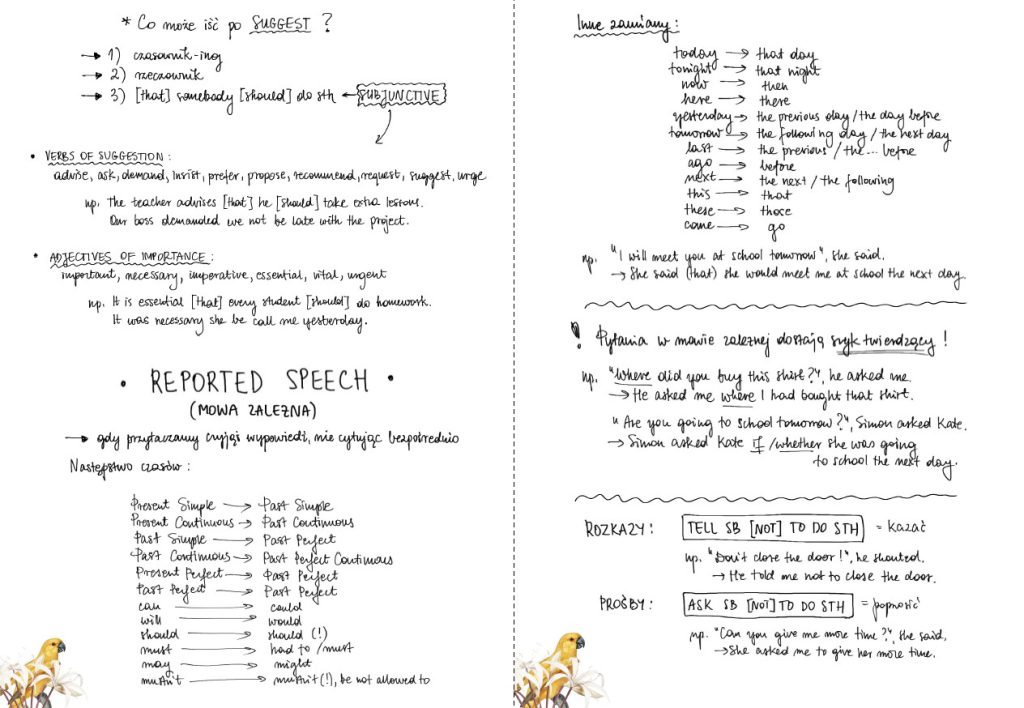 * Co może iść po SUGGEST ?
→ 1) czasownik-ing
→ 2) rzeczownik
→ 3) [that] somebody [should] do sth ← SUBJUNCTIVE
• VERBS OF SUGGESTION :
advise, ask, demand, insist, prefer, propose, recommend, request, suggest, urge
np. The teacher advises [that] he [should] take extra lessons.
Our boss demanded we not be late with the project.
* ADJECTIVES OF IMPORTANCE :
important, necessary, imperative, essential, vital, urgent
np. It is essential [that] every student [should] do homework.
It was necessary she be call me yesterday.
• REPORTED SPEECH •
(MOWA ZALEŻNA)
→ gdy przytaczamy czyjąś wypowiedź, nie cytując bezpośrednio
Następstwo czasów :
Present Simple → Past Simple
Present Continuous → Past Continuous
Past Simple → Past Perfect
Past Continuous → Past Perfect Continuous
Present Perfect → Past Perfect
Past Perfect → Past Perfect
can → could
will → would
should → should (!)
must → had to / must
may → might
mustn't → mustn't (!), be not allowed to
Inne zamiany :
today → that day
tonight → that night
now → then
here → there
yesterday → the previous day / the day before
tomorrow → the following day / the next day
last → the previous / the... before
ago → before
next → the next / the following
this → that
these → those
come → go
np. "I will meet you at school tomorrow", she said.
→ She said (that) she would meet me at school the next day.
! Pytania w mowie zależnej dostają szyk twierdzący !
np. "Where did you buy this shirt?", he asked me.
→ He asked me where I had bought that shirt.
"Are you going to school tomorrow?", Simon asked Kate.
→ Simon asked Kate if / whether she was going
to school the next day.
ROZKAZY : TELL SB [NOT] TO DO STH = kazać
np. "Don't close the door!", he shouted.
→ He told me not to close the door.
PROŚBY : ASK SB [NOT] TO DO STH = poprosić
np. "Can you give me more time?", she said.
→ She asked me to give her more time.